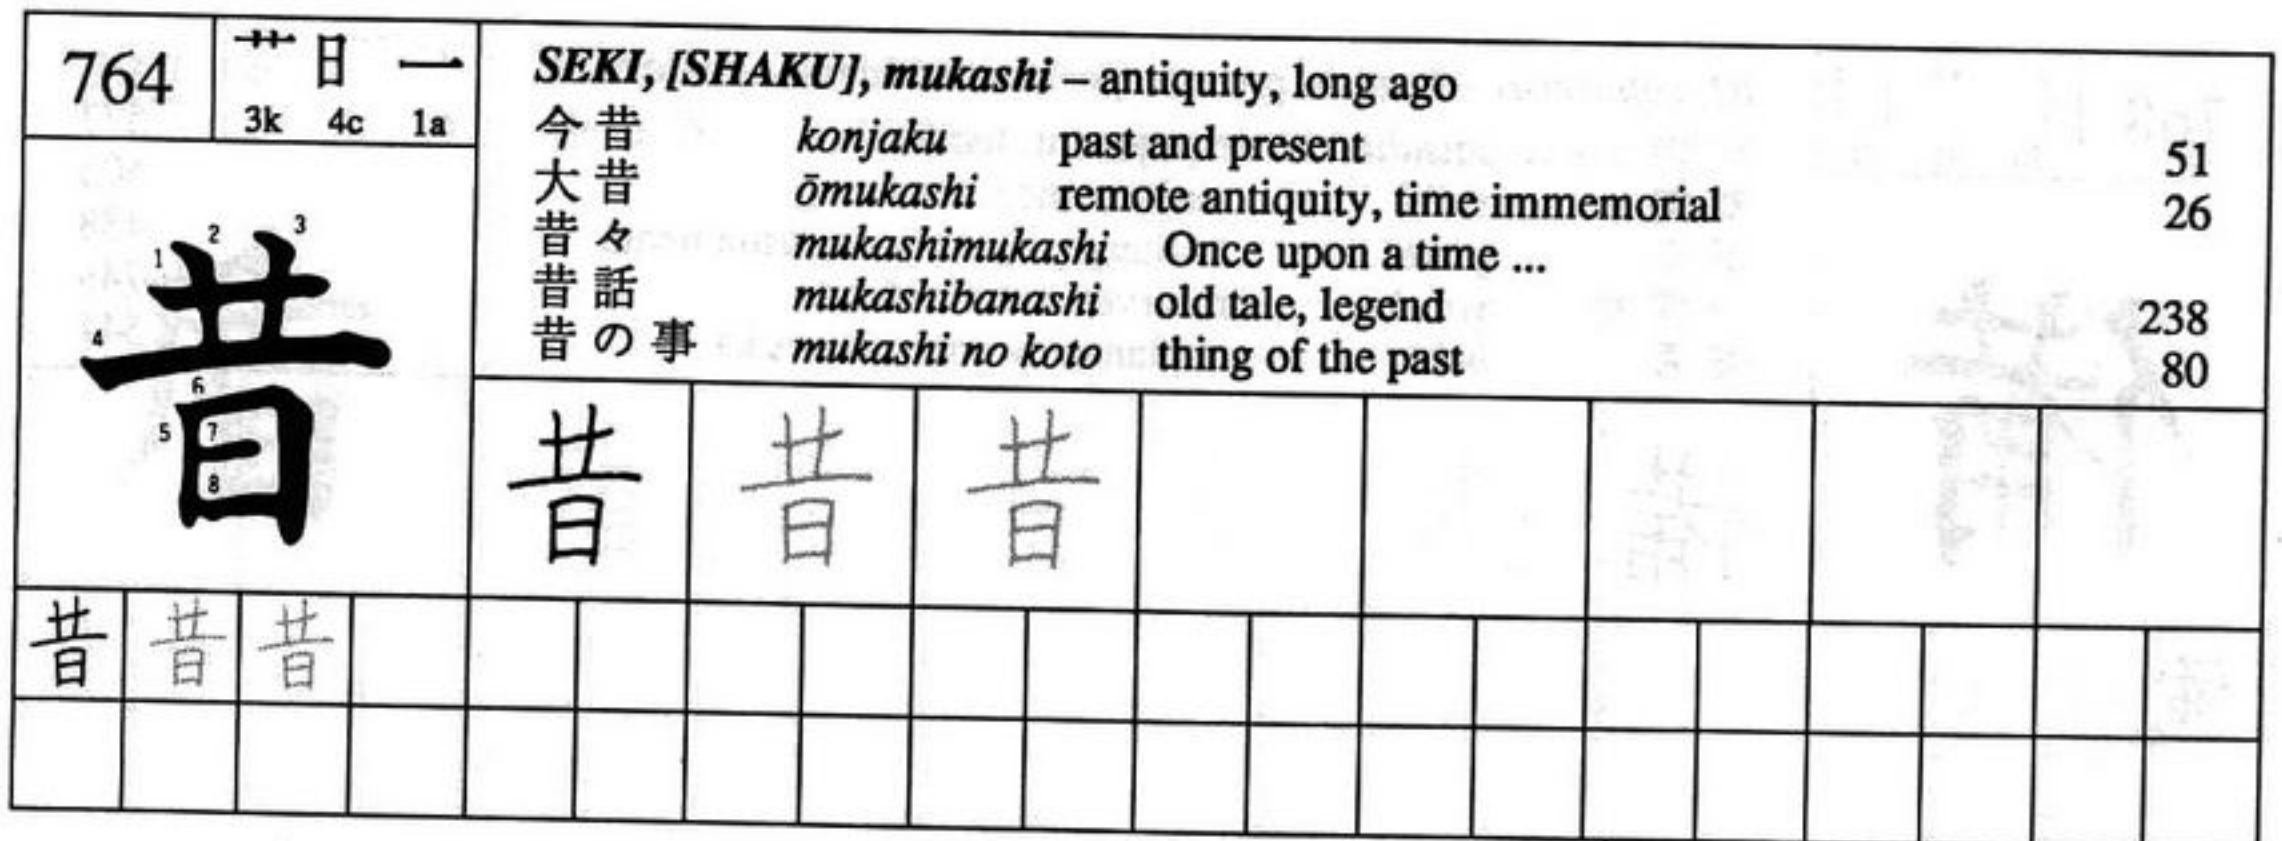 764
艹 日 一
3k 4c 1a
SEKI, [SHAKU], mukashi – antiquity, long ago
今昔 konjaku past and present 51
大昔 ōmukashi remote antiquity, time immemorial 26
昔々 mukashimukashi Once upon a time ...
昔話 mukashibanashi old tale, legend 238
昔の事 mukashi no koto thing of the past 80
昔
1 2 3 4 5 6 7 8
昔 昔 昔
昔 昔 昔